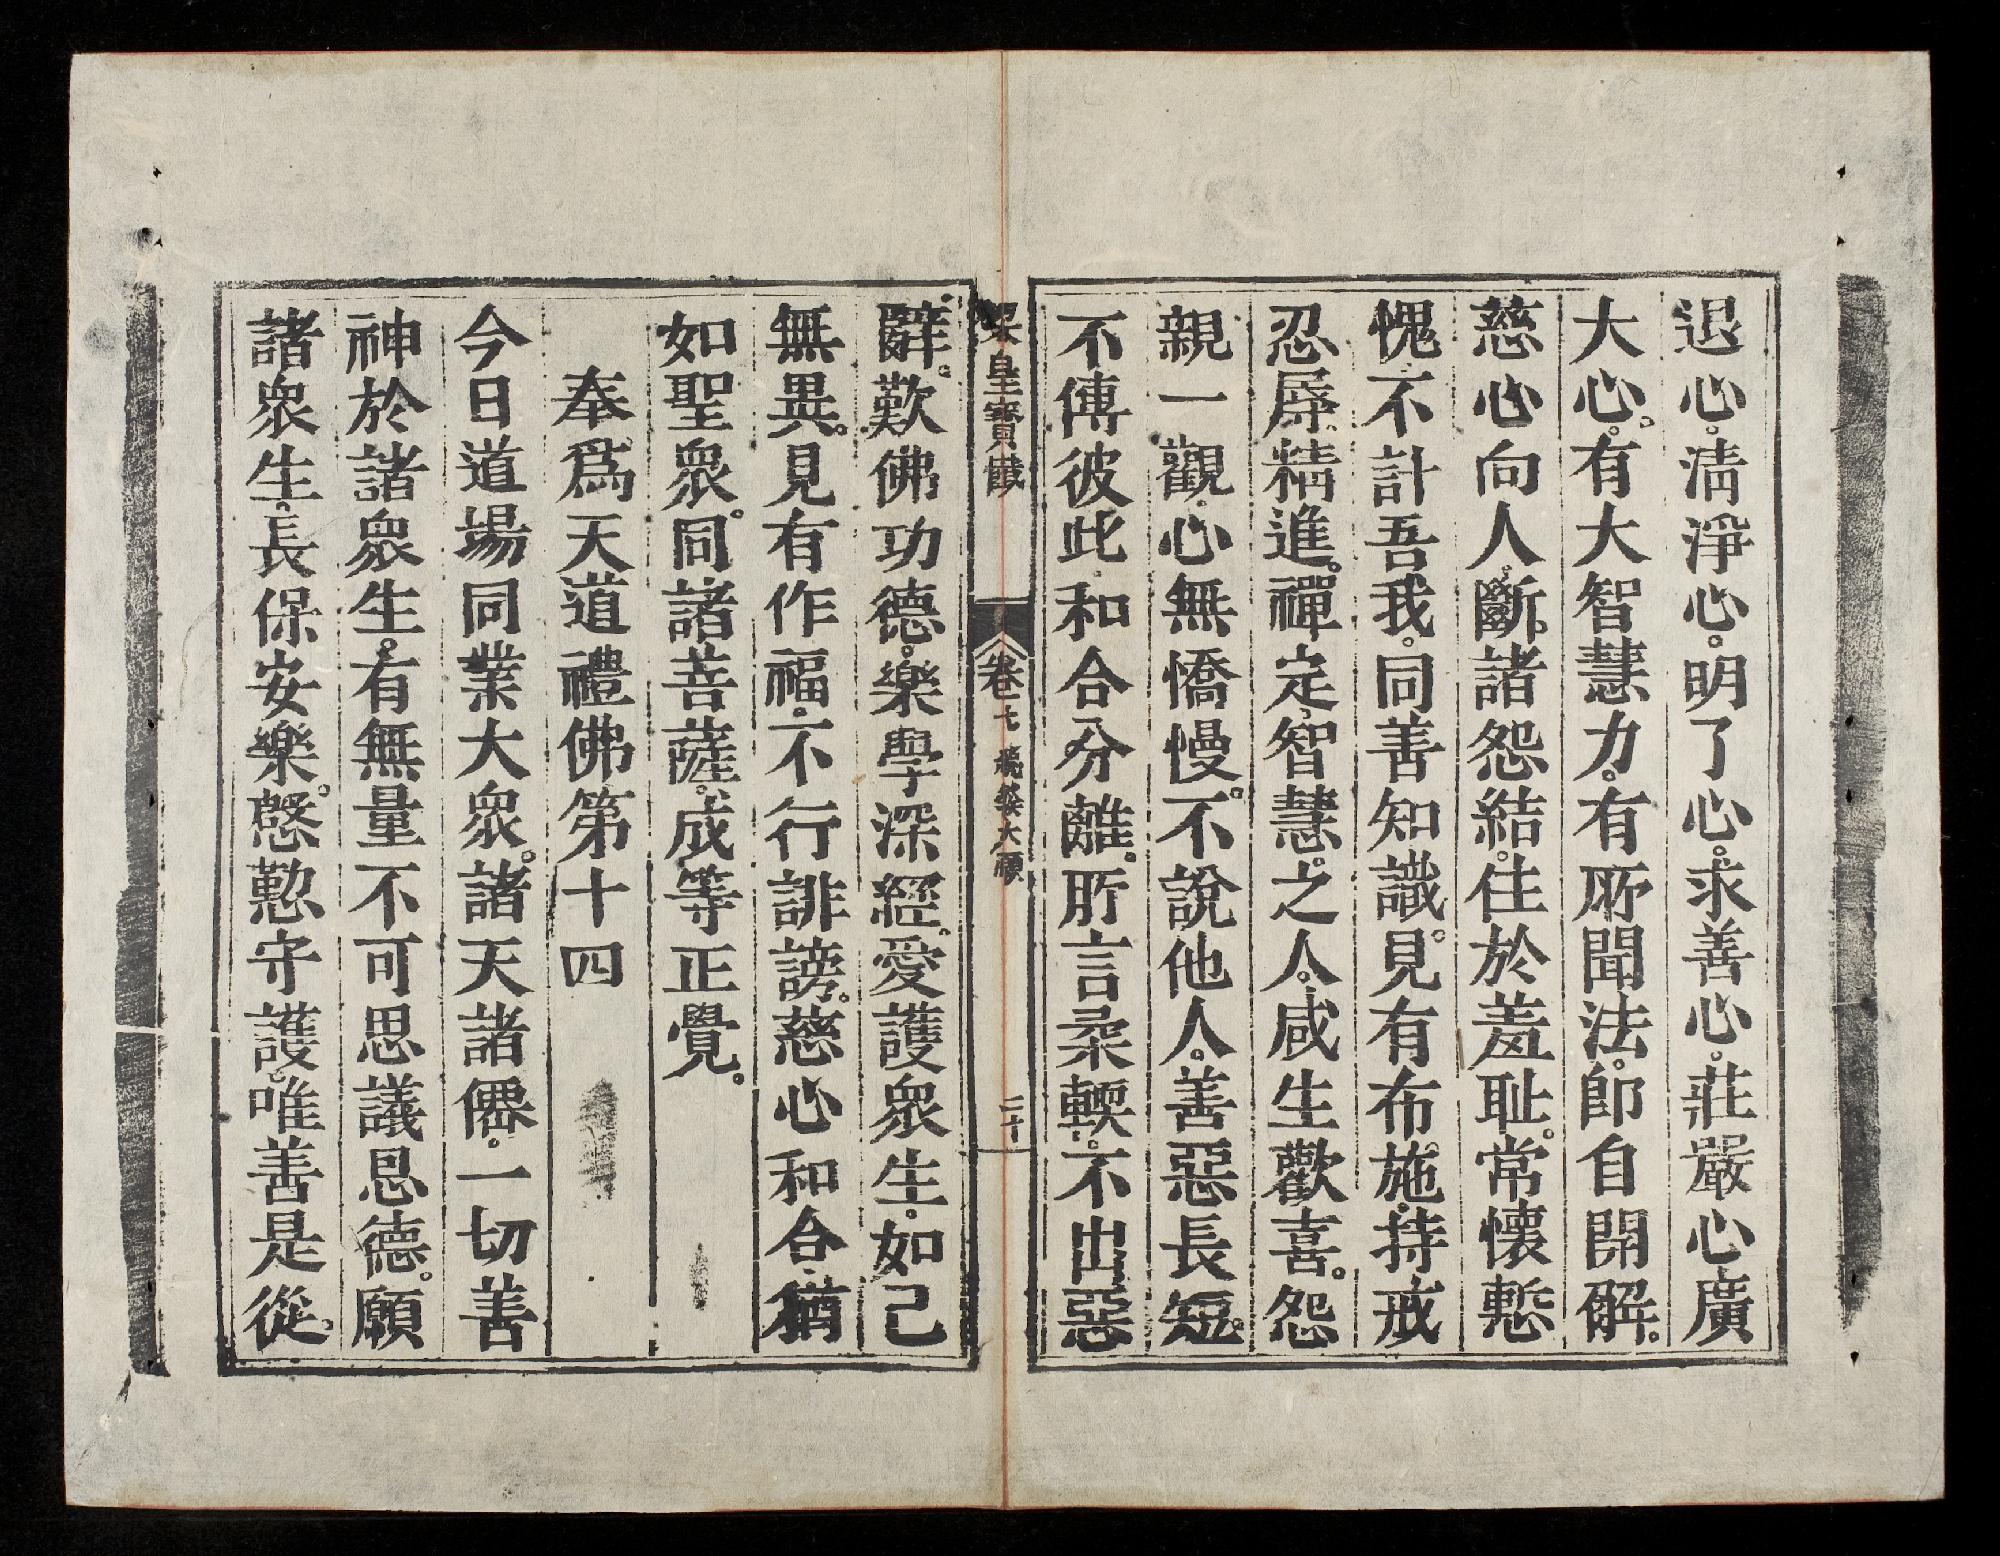 退心。清淨心。明了心。求善心。莊嚴心廣
大心。有大智慧力。有所聞法。即自開解。
慈心向人。斷諸怨結。住於羞耻。常懷慙
愧。不計吾我。同善知識。見有布施。持戒
忍辱。精進。禪定。智慧。之人。咸生歡喜。怨
親一觀。心無憍慢。不說他人。善惡長短。
不傳彼此。和合分離。所言柔輭。不出惡
梁皇寶懺 卷七 大願 二十
辭。歎佛功德。樂學深經。愛護衆生。如己
無異。見有作福。不行誹謗。慈心和合。猶
如聖衆。同諸菩薩。成等正覺。
奉爲天道禮佛第十四
今日道場同業大衆。諸天諸僊。一切善
神於諸衆生。有無量不可思議恩德。願
諸衆生。長保安樂。慇懃守護。唯善是從。